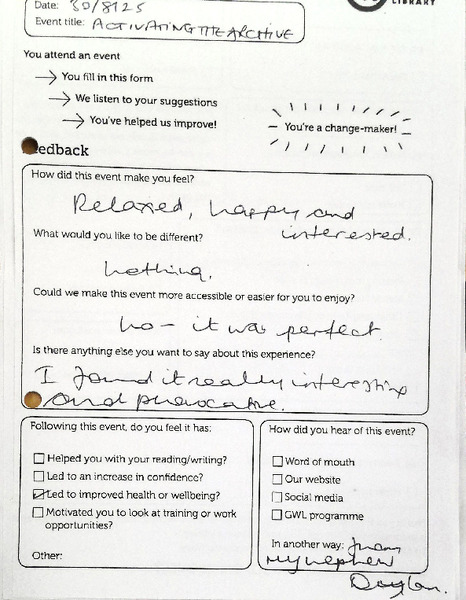 Date: 30/8125
LIBRARY
Event title: ACTIVATING THE ARCHIVE
You attend an event
→ You fill in this form
→ We listen to your suggestions
→ You've helped us improve!
You're a change-maker!
edback
How did this event make you feel?
Relaxed, happy and
interested.
What would you like to be different?
nothing.
Could we make this event more accessible or easier for you to enjoy?
no - it was perfect.
Is there anything else you want to say about this experience?
I found it really interesting
and provocative.
Following this event, do you feel it has:
Helped you with your reading/writing?
Led to an increase in confidence?
Led to improved health or wellbeing?
Motivated you to look at training or work
opportunities?
Other:
How did you hear of this event?
Word of mouth
Our website
Social media
GWL programme
In another way: from
my nephew
Dougan.